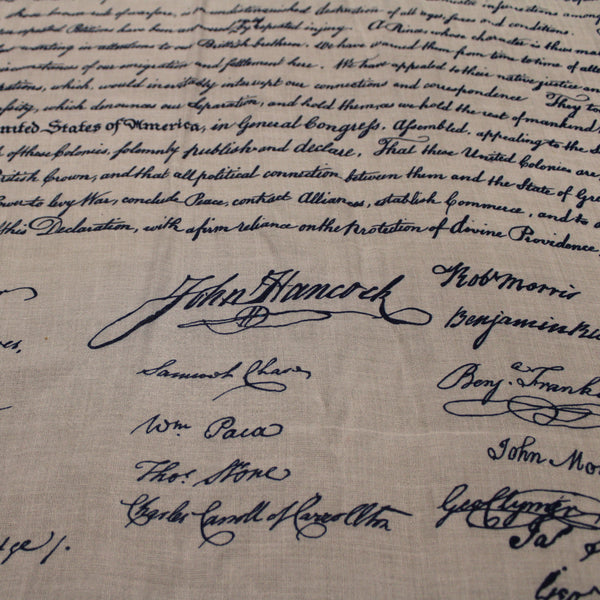 undistinguished destruction of all ages, sexes and conditions.
injury. A Prince, whose character is thus
attentions to our British brethren. We have warned them from time to time of
of our emigration and settlement here. We have appealed to their native justice and
which, would inevitably interrupt our connections and correspondence. They too
which denounces our Separation, and hold them, as we hold the rest of mankind
United States of America, in General Congress, Assembled, appealing to the
of these Colonies, solemnly publish and declare, That these United Colonies are,
British Crown, and that all political connection between them and the State of
to levy War, conclude Peace, contract Alliances, establish Commerce, and to
this Declaration, with a firm reliance on the Protection of divine Providence,
John Hancock
Robt Morris
Benjamin
Samuel Chase
Benja. Frank
Wm Paca
John Mo
Thos. Stone
Charles Carroll of Carrollton
Geo Clymer
Ja